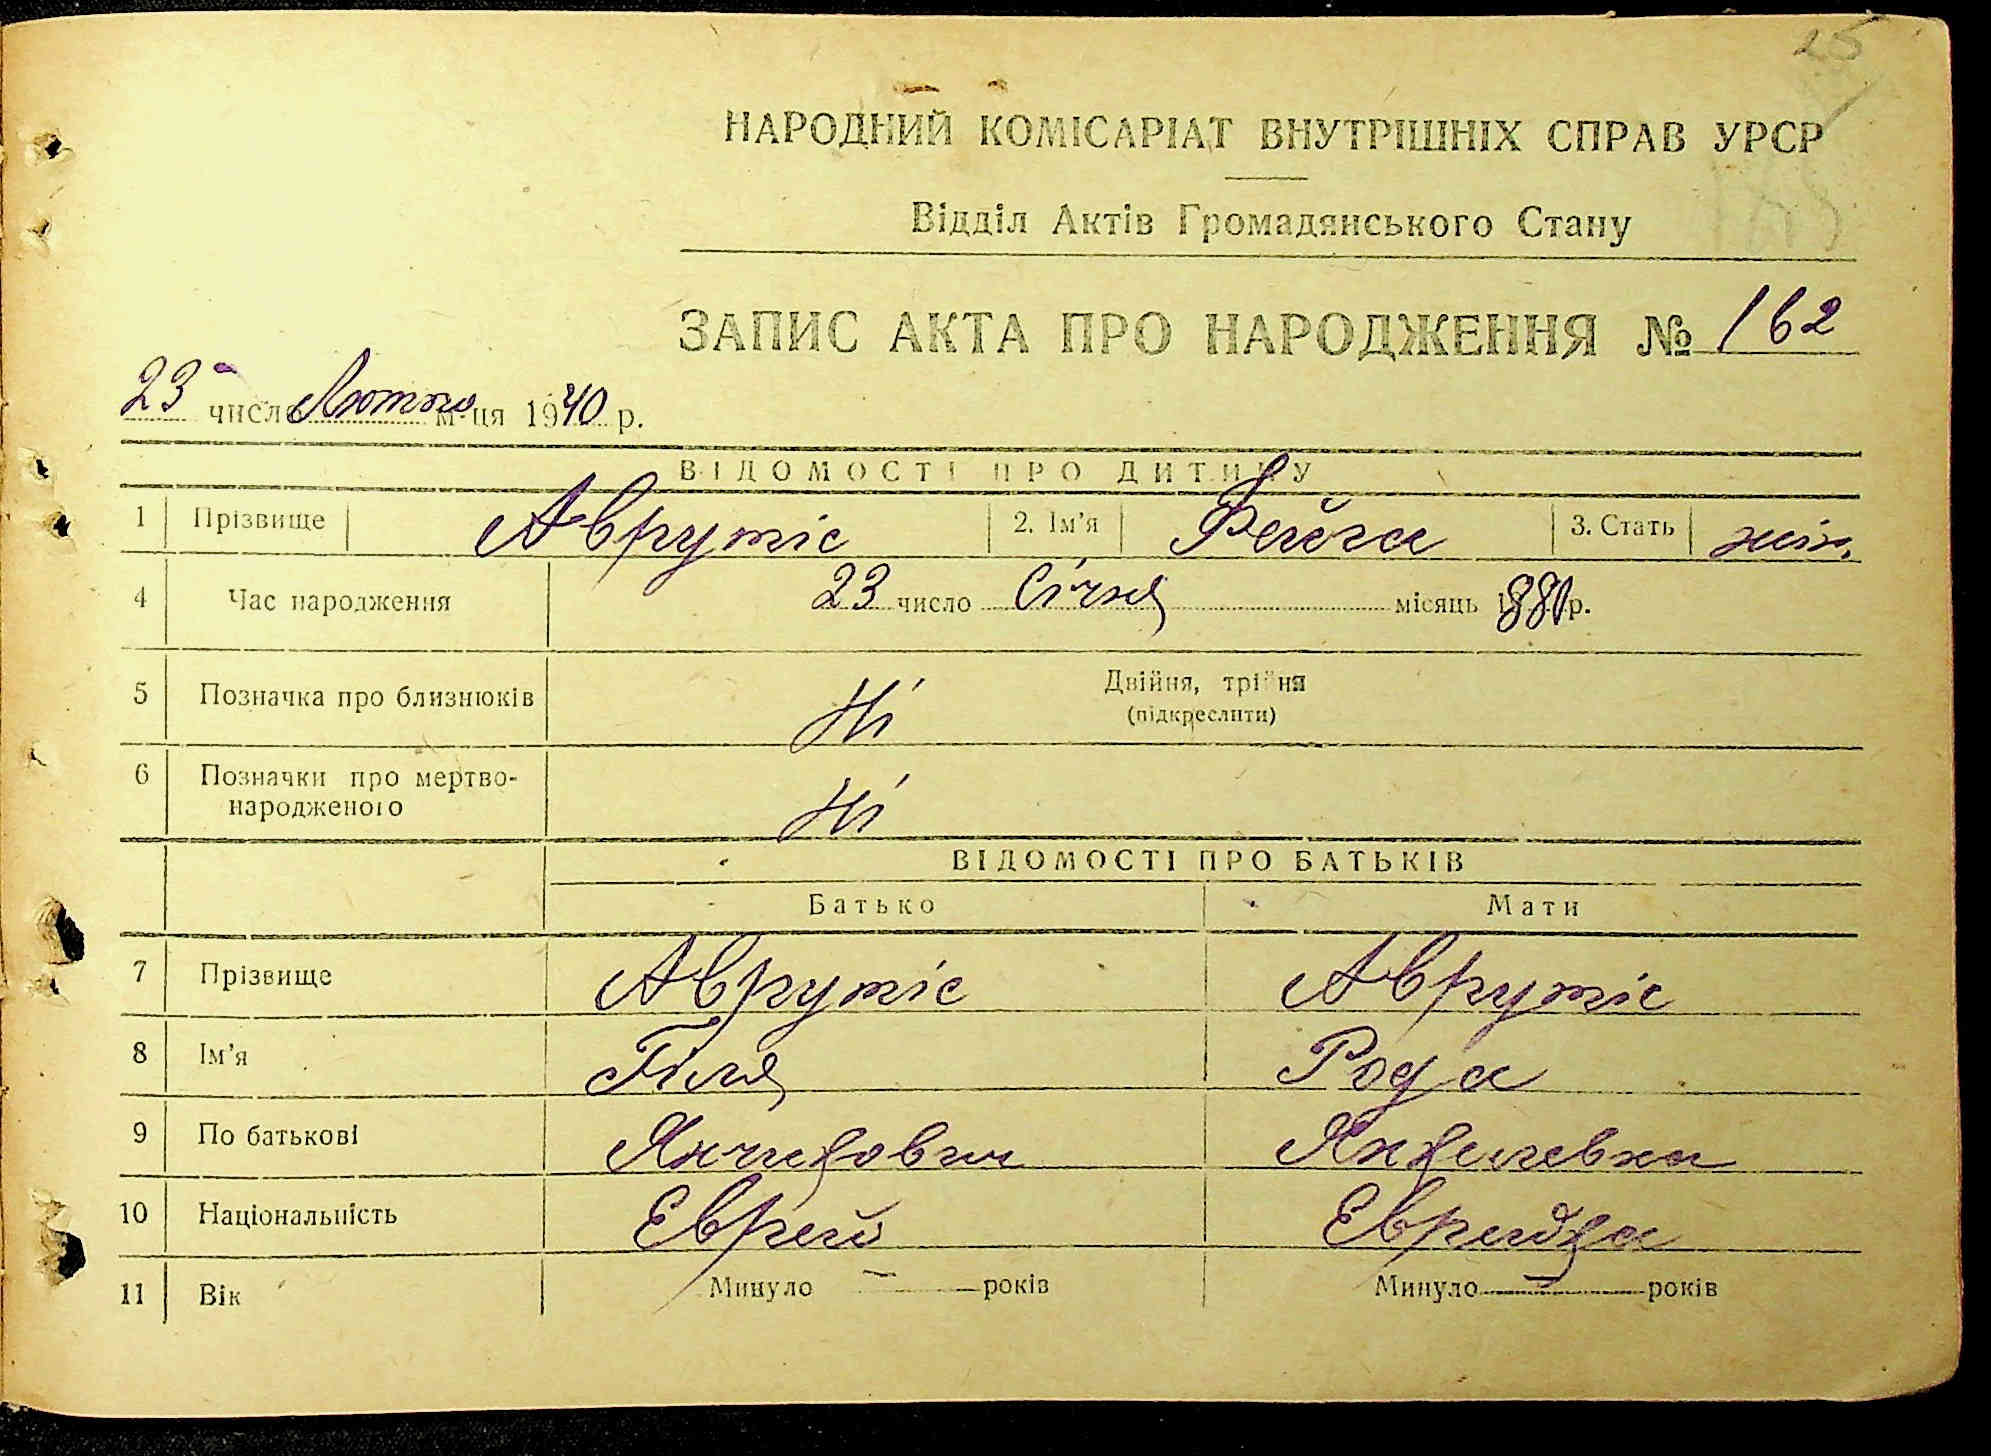 25
НАРОДНИЙ КОМІСАРІАТ ВНУТРІШНІХ СПРАВ УРСР
Відділ Актів Громадянського Стану
ЗАПИС АКТА ПРО НАРОДЖЕННЯ № 162
23 число Лютого м-ця 1940 р.
ВІДОМОСТІ ПРО ДИТИНУ
1 Прізвище Аврутіс 2. Ім'я Фейга 3. Стать жін.
4 Час народження 23 число Січня місяць 1880 р.
5 Позначка про близнюків Ні Двійня, трійня
(підкреслити)
6 Позначки про мертво-
народженого Ні
ВІДОМОСТІ ПРО БАТЬКІВ
Батько Мати
7 Прізвище Аврутіс Аврутіс
8 Ім'я Гіля Рода
9 По батькові Янкелевна
10 Національність Еврей Еврейка
11 Вік Минуло — років Минуло — років